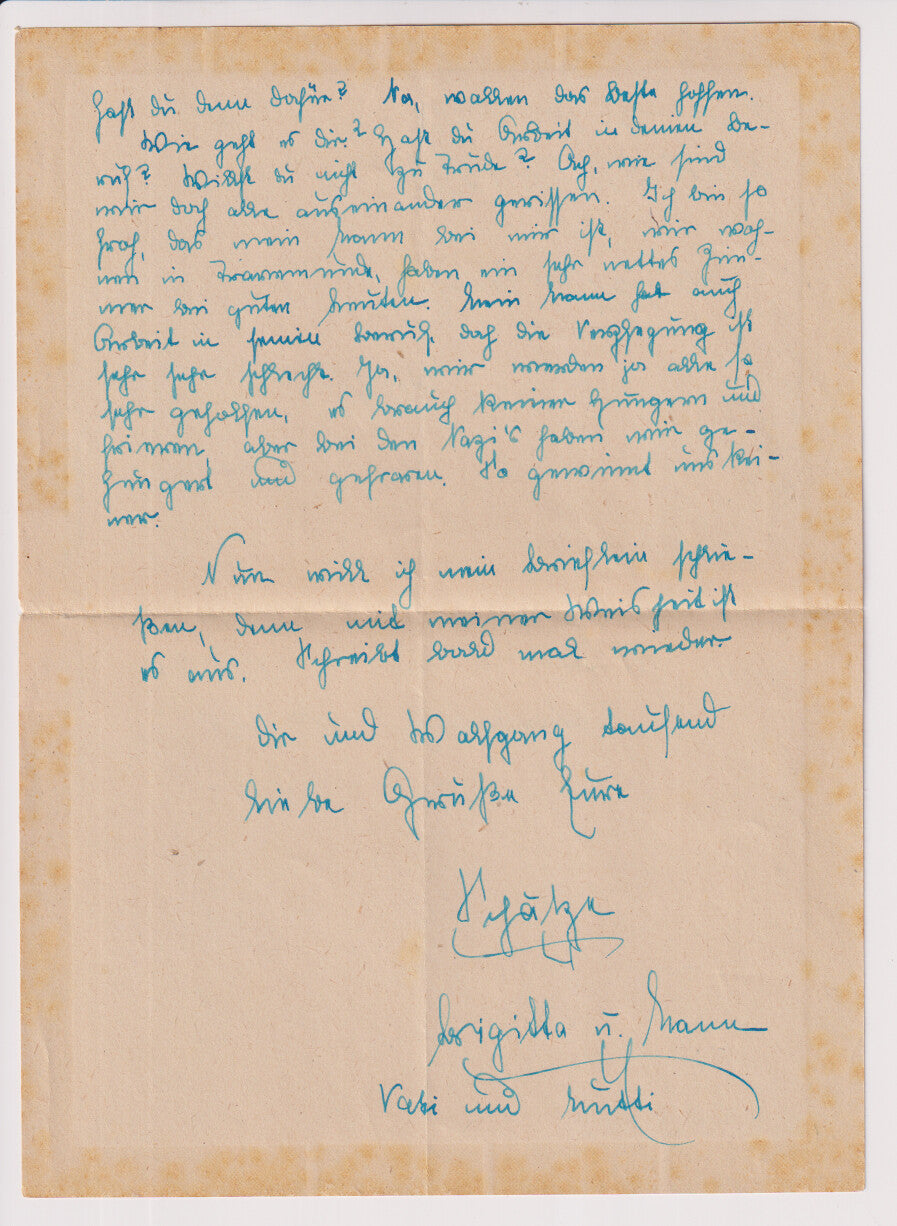 Hast du denn dafür? Na, wollen das Beste hoffen.
Wie geht es dir? Hast du Arbeit in deinem Be-
ruf? Willst du nicht zu Trude? Ach, wie sind
wir doch alle auseinander gerissen. Ich bin so
froh, das mein Mann bei mir ist, wir woh-
nen in Travemünde, haben ein sehr nettes Zim-
mer bei guten Leuten. Mein Mann hat auch
Arbeit in seinen Beruf, doch die Verpflegung ist
sehr sehr schlecht. Ja, wir werden ja alle so
sehr geholfen, es brauch keiner Hungern und
frieren, aber bei den Nazi's haben wir ge-
hungert und gefroren. So gewinnt uns kei-
ner.
Nun will ich mein Brieflein schlie-
ßen, denn mit meiner Weisheit ist
es aus. Schreibt bald mal wieder.
Dir und Wolfgang tausend
liebe Grüße Eure
Schätze
Brigitta u. Mann
Vati und Mutti